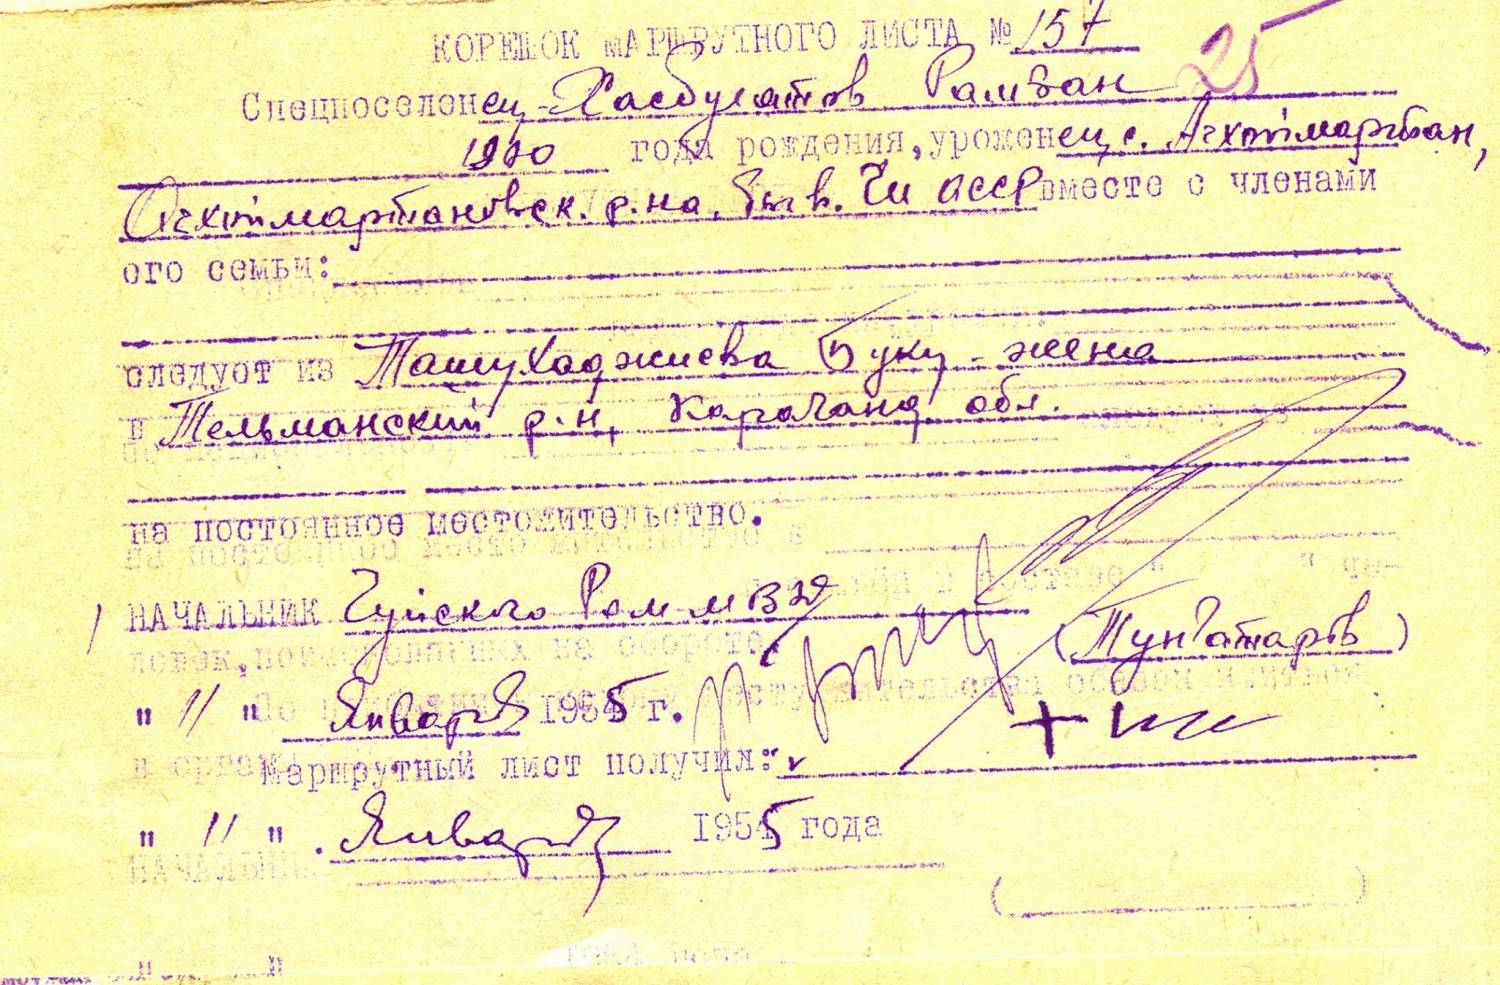 КОРЕШОК МАРШРУТНОГО ЛИСТА № 157
25
Спецпоселенец - Хасбулатов Рамзан
1900 года рождения, уроженец с. Ачхоймартан,
Ачхоймартановск. р-на, быв. Чи АССР вместе с членами
его семьи:
следует из Ташухаджиева Буку - жена
в Тельманский р-н, Караганд. обл.
на постоянное местожительство.
НАЧАЛЬНИК Чуйского РОМ МВД
(Тунгатаров)
" 11 " Января 1955 г.
Маршрутный лист получил:
" 11 " Января 1955 года
НАЧАЛЬНИК